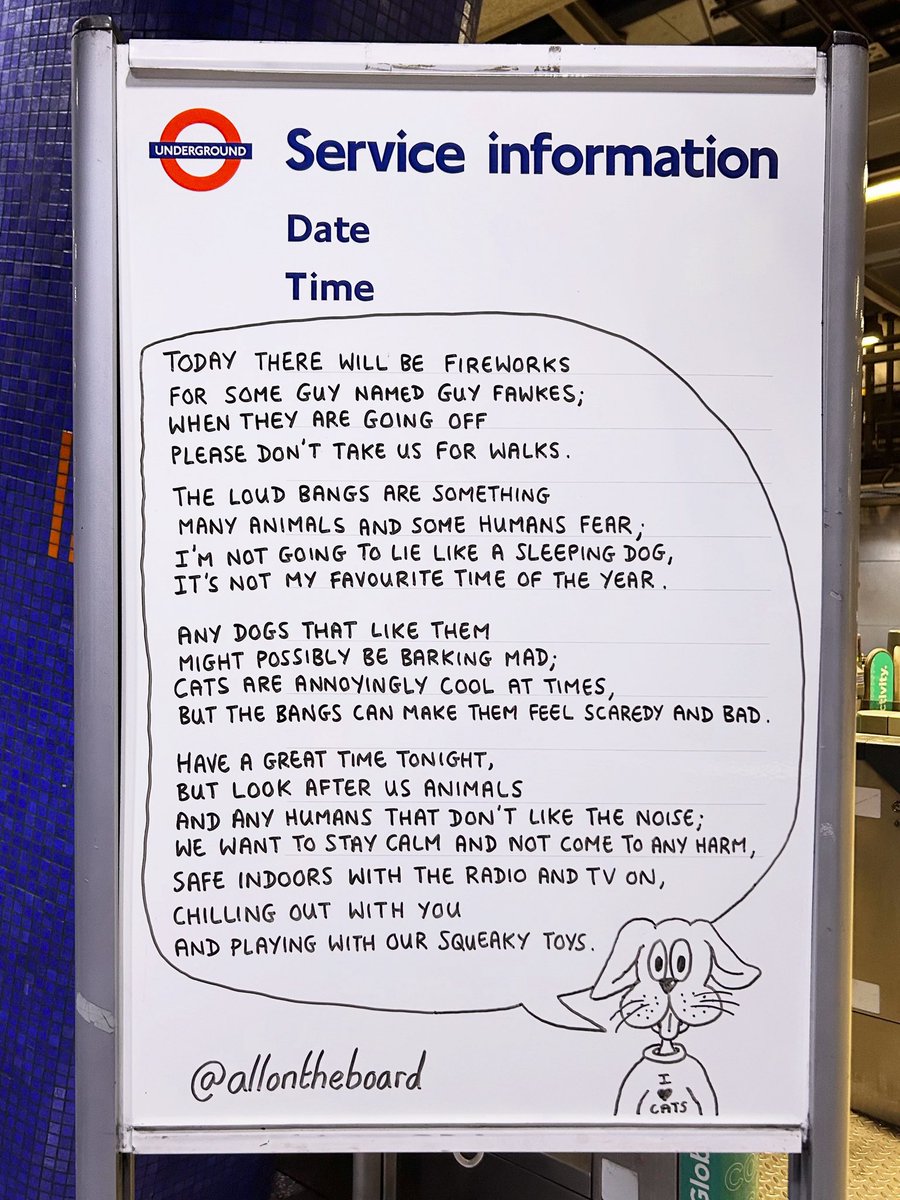 UNDERGROUND
Service information
Date
Time
TODAY THERE WILL BE FIREWORKS
FOR SOME GUY NAMED GUY FAWKES;
WHEN THEY ARE GOING OFF
PLEASE DON'T TAKE US FOR WALKS.
THE LOUD BANGS ARE SOMETHING
MANY ANIMALS AND SOME HUMANS FEAR;
I'M NOT GOING TO LIE LIKE A SLEEPING DOG,
IT'S NOT MY FAVOURITE TIME OF THE YEAR.
ANY DOGS THAT LIKE THEM
MIGHT POSSIBLY BE BARKING MAD;
CATS ARE ANNOYINGLY COOL AT TIMES,
BUT THE BANGS CAN MAKE THEM FEEL SCAREDY AND BAD.
HAVE A GREAT TIME TONIGHT,
BUT LOOK AFTER US ANIMALS
AND ANY HUMANS THAT DON'T LIKE THE NOISE;
WE WANT TO STAY CALM AND NOT COME TO ANY HARM,
SAFE INDOORS WITH THE RADIO AND TV ON,
CHILLING OUT WITH YOU
AND PLAYING WITH OUR SQUEAKY TOYS.
I
CATS
@allontheboard